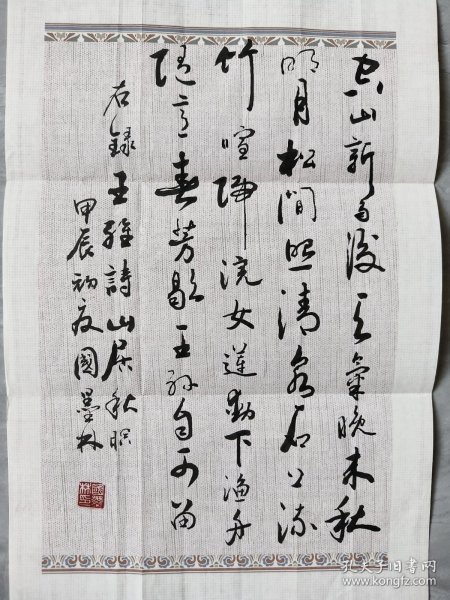 空山新雨後天氣晚来秋
明月松間照清泉石上流
竹喧歸浣女蓮動下漁舟
随意春芳歇王孫自可留
右録王維詩山居秋暝
甲辰初夏國墨林
孔夫子旧书网
www.kongfz.com